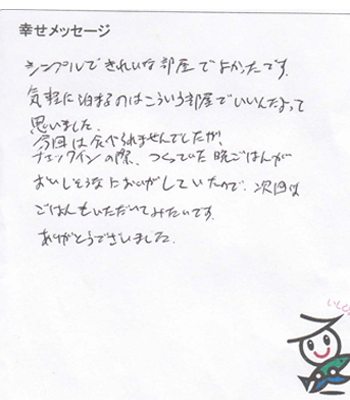 幸せメッセージ
シンプルできれいな部屋でよかったです。
気軽に泊まるのはこういう部屋でいいんだよって
思いました。
今回は食べられませんでしたが、
チェックインの際、つくっていた晩ごはんが
おいしそうなにおいがしていたので、次回は
ごはんもいただいてみたいです。
ありがとうございました。